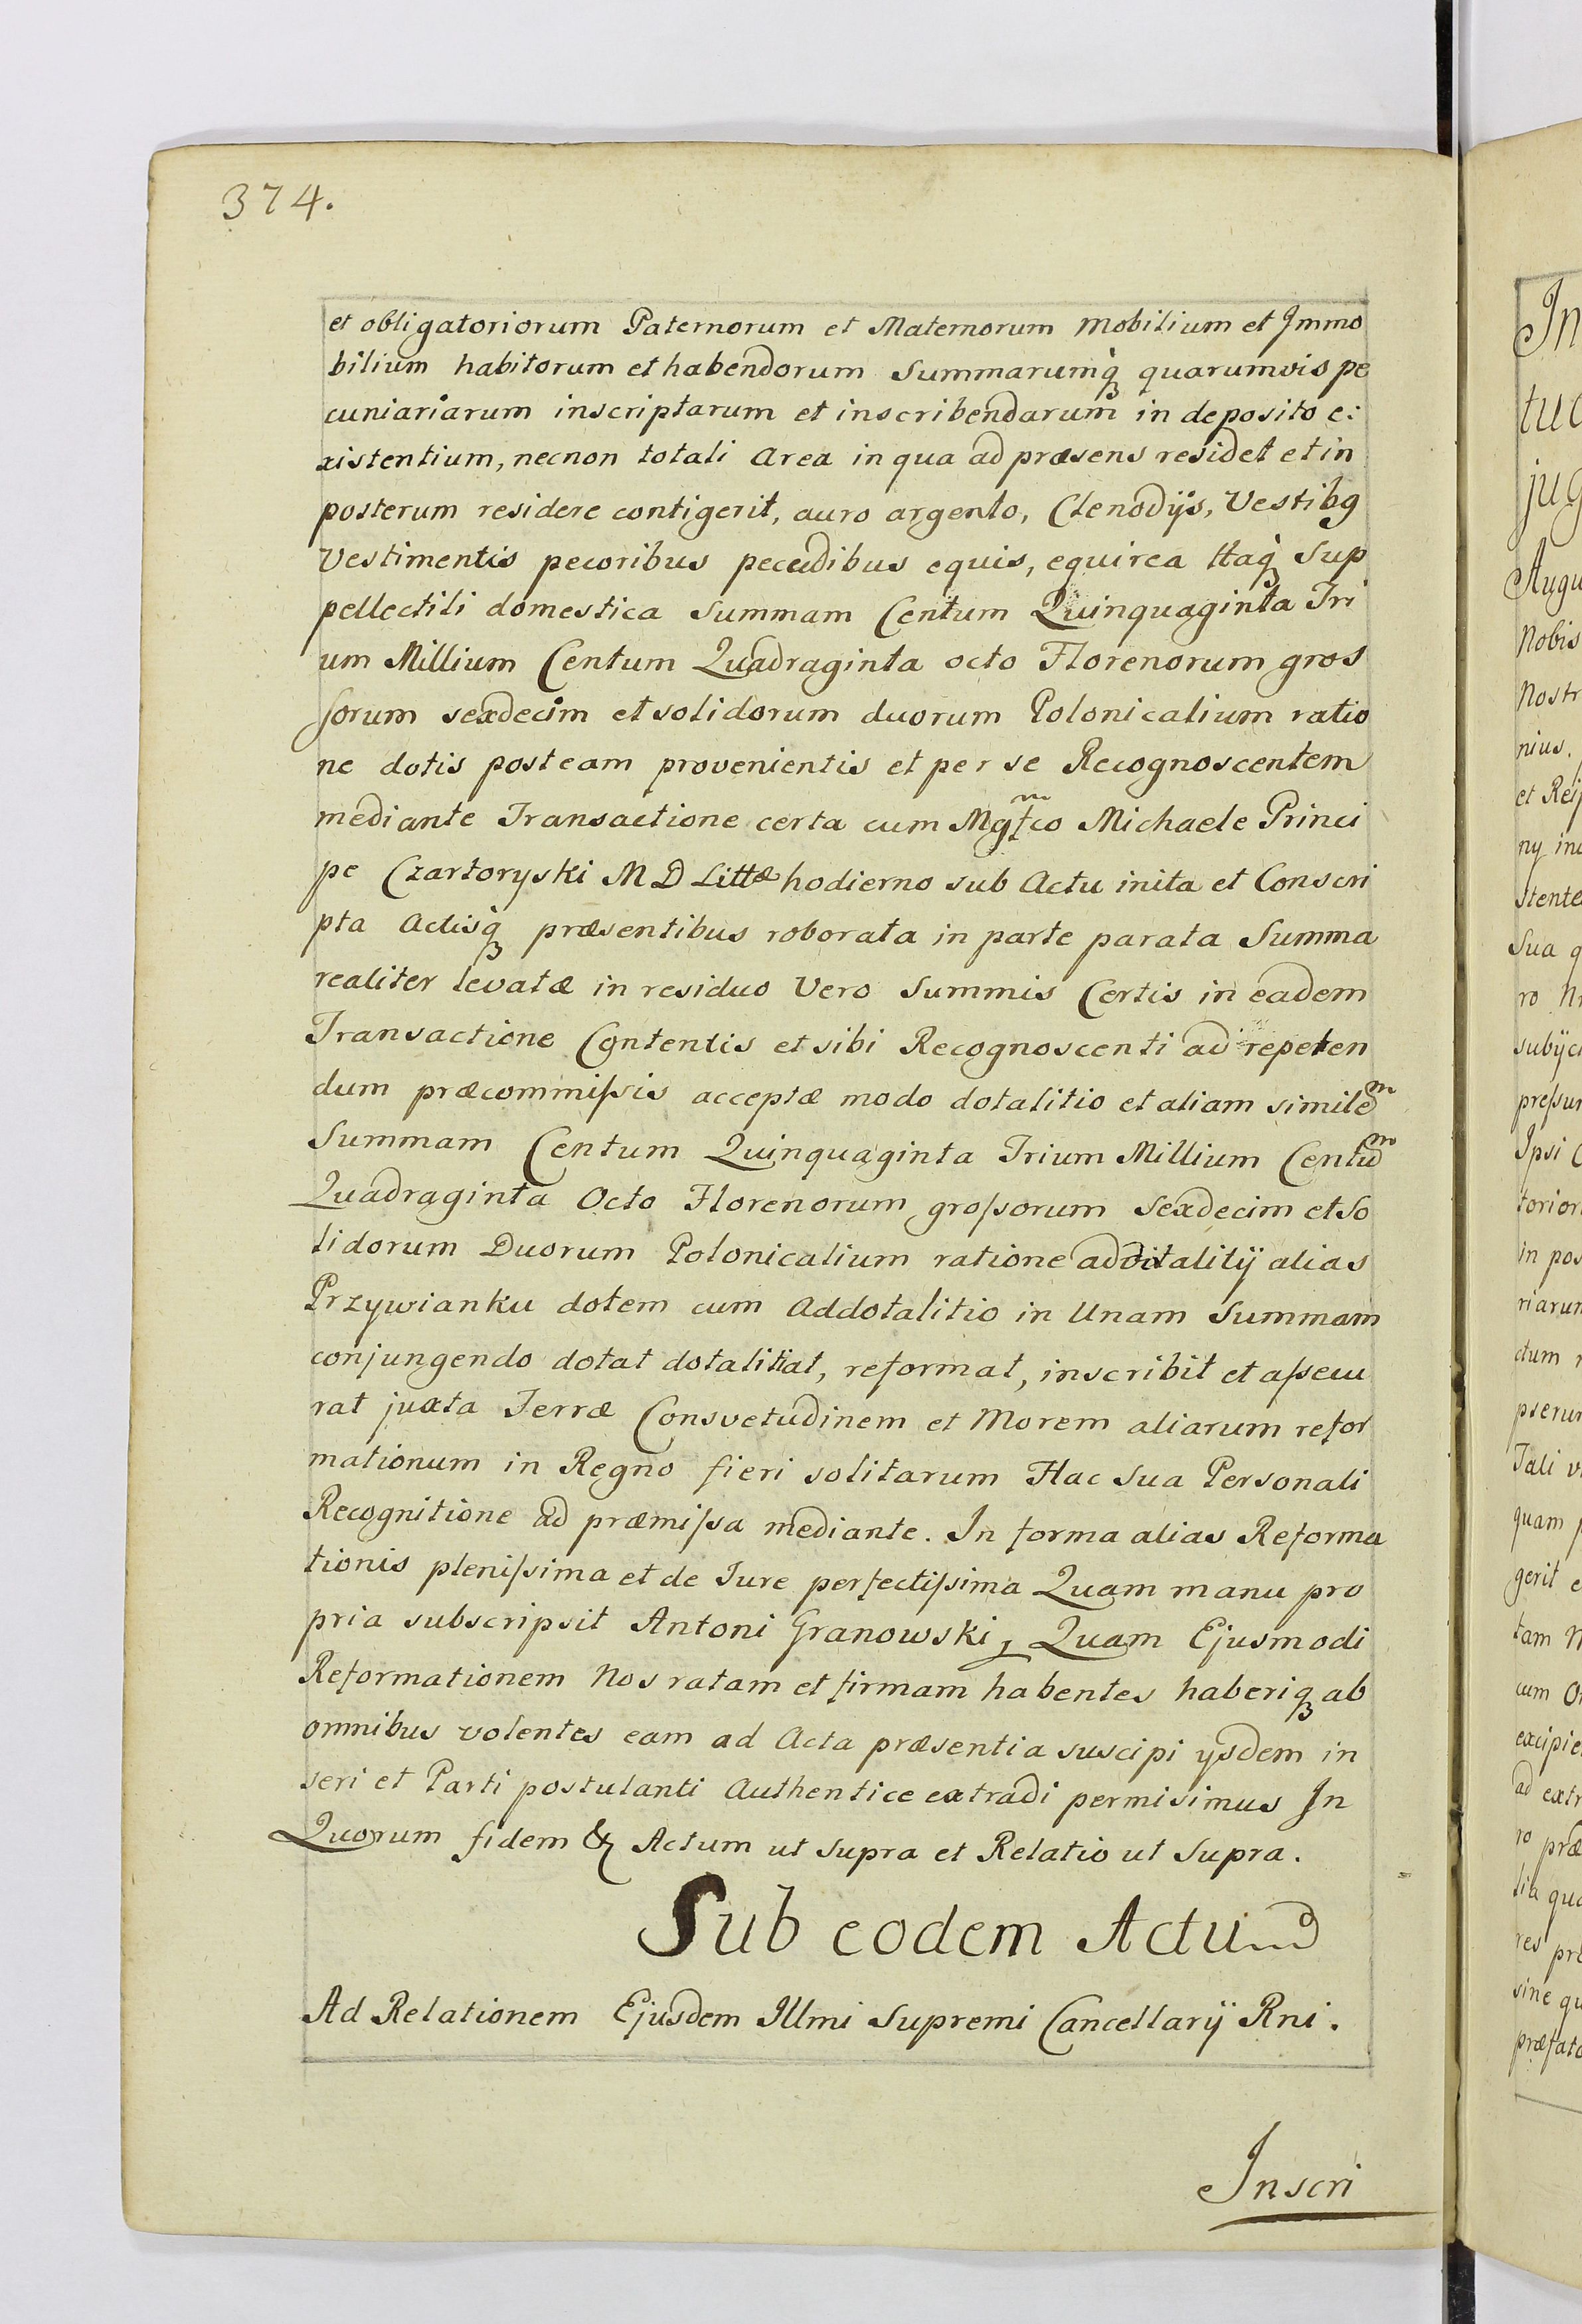 374.
et obligatoriorum Paternorum et Maternorum Mobilium et Immo
bilium habitorum et habendorum Summarumq́ꝫ quarumvis pe
cuniariarum inscriptarum et inscribendarum in deposito e:
xistentium, necnon totali Area in qua ad præsens residet et in
posterum residere contigerit, auro argento, Clenodijs, Vestibꝯ
Vestimentis pecoribus pecudibus equis, equirea ttaq́ꝫ Sup
pellectili domestica Summam Centum Quinquaginta Tri
um Millium Centum Quadraginta octo Florenorum gros
sorum sexdecim et solidorum duorum Polonicalium ratio
ne dotis post eam provenientis et per se Recognoscentem
mediante Transactione certa cum Mgfco Michaele Princi
pe Czartoryski M D Littæ hodierno sub Actu inita et Conscri
pta Actisq́ꝫ præsentibus roborata in parte parata Summa
realiter levatæ in residuo Vero Summis Certis in eadem
Transactione Contentis et sibi Recognoscenti ad repeten
dum præcommiſsis acceptæ modo dotalitio et aliam simile͠m
Summam Centum Quinquaginta Trium Millium Centu͠m
Quadraginta Octo Florenorum groſsorum Sexdecim et So
lidorum Duorum Polonicalium ratione addotalitij alias
Przywianku dotem cum Addotalitio in Unam Summam
conjungendo dotat dotalitiat, reformat, inscribit et aſsecu
rat juxta Terræ Consvetudinem et Morem aliarum refor
mationum in Regno fieri solitarum Hac Sua Personali
Recognitione ad præmiſsa mediante. In forma alias Reforma
tionis pleniſsima et de Iure perfectiſsima Quam manu pro
pria subscripsit Antoni Granowski, Quam Ejusmodi
Reformationem Nos ratam et firmam habentes haberiqꝫ ab
omnibus volentes eam ad Acta præsentia suscipi ysdem in
seri et Parti postulanti Authentice extradi permisimus In
Quorum fidem & Actum ut Supra et Relatio ut Supra.
Sub eodem Actu
Ad Relationem Ejusdem Illmi Supremi Cancellarij Rni.
Inscri
In
jug
Augu
Nobis
Nostr
nius.
et Reip
Stente
Sua q
subijci
Ipsi
torior
in pos
riarun
ctum
Tali
quam
gerit
tam
cum
excipie
ad extr
ro præ
res
sine qu
præfato